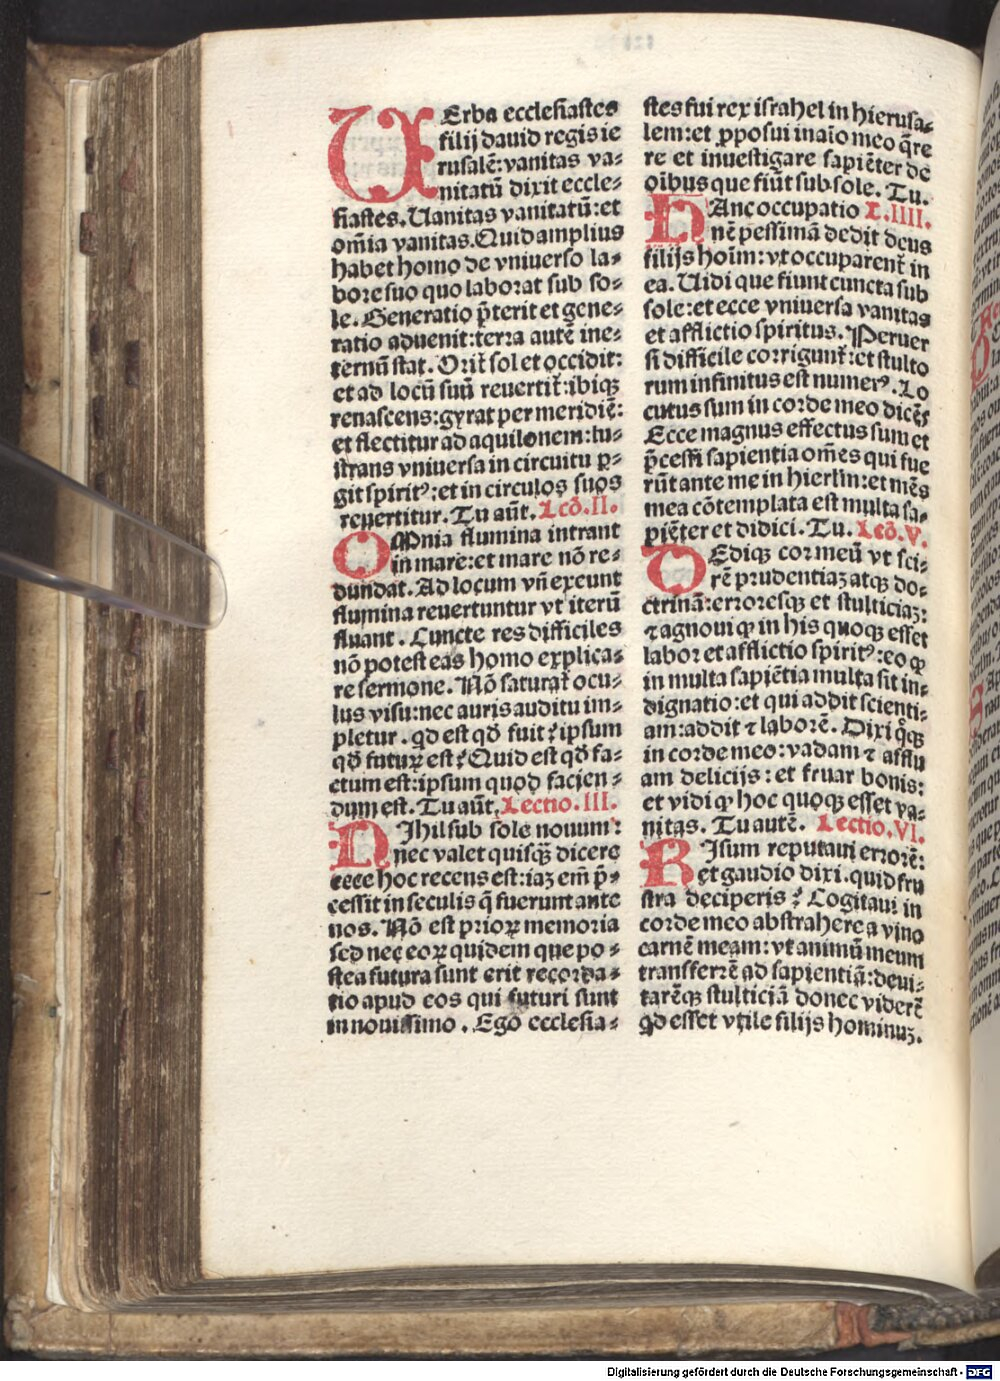 VErba ecclesiastes
filij dauid regis ie
rusalē: vanitas va-
nitatū dixit eccle-
siastes. Uanitas vanitatū: et
om̄ia vanitas. Quid amplius
habet homo de vniuerso la-
bore suo quo laborat sub so-
le. Generatio p̄terit et gene-
ratio aduenit: terra autē ine-
ternū stat. Orit᷑ sol et occidit:
et ad locū suū reuertit᷑: ibiqꝫ
renascens: gyrat per meridiē:
et flectitur ad aquilonem: lu-
strans vniuersa in circuitu ꝑ-
git spiritꝰ: et in circulos suos
reuertitur. Tu aūt. Lcō. II.
OMnia flumina intrant
in mare: et mare nō re-
dundat. Ad locum vn̄ exeunt
flumina reuertuntur vt iterū
fluant. Cuncte res difficiles
nō potest eas homo explica-
re sermone. Nō saturat᷑ ocu-
lus visu: nec auris auditu im-
pletur. qd est qd̄ fuit? ipsum
qd̄ futuꝝ est? Quid est qd̄ fa-
ctum est: ipsum quod facien-
dum est. Tu aūt. Lectio. III.
NIhil sub sole nouum:
nec valet quisqꝫ dicere
ecce hoc recens est: iaꝫ em̄ p̄-
cessit in seculis q̄ fuerunt ante
nos. Nō est prioꝝ memoria
sed nec eoꝝ quidem que po-
stea futura sunt erit recorda-
tio apud eos qui futuri sunt
in nouissimo. Ego ecclesia-
stes fui rex israhel in hierusa-
lem: et ꝓposui in aīo meo q̄re
re et inuestigare sapiēter de
oībus que fiūt sub sole. Tu.
HAnc occupatio L. IIII.
nē pessimā dedit deus
filijs hoīm: vt occuparent᷑ in
ea. Uidi que fiunt cuncta sub
sole: et ecce vniuersa vanitas
et afflictio spiritus. Peruer
si difficile corrigunt᷑: et stulto
rum infinitus est numerꝰ. Lo
cutus sum in corde meo dicēs
Ecce magnus effectus sum et
p̄cessi sapientia om̄es qui fue
rūt ante me in hierlm: et mēs
mea cōtemplata est multa sa-
piēter et didici. Tu. Lcō. V.
DEdiqꝫ cor meū vt sci-
rē prudentiaꝫ atqꝫ do-
ctrinā: erroresqꝫ et stulticiaꝫ:
⁊ agnoui ꝙ in his quoqꝫ esset
labor et afflictio spiritꝰ: eo ꝙ
in multa sapiētia multa sit in-
dignatio: et qui addit scienti-
am: addit ⁊ laborē. Dixi q̊qꝫ
in corde meo: vadam ⁊ afflu
am delicijs: et fruar bonis:
et vidi ꝙ hoc quoqꝫ esset va-
nitas. Tu autē. Lectio. VI.
RIsum reputaui errorē:
et gaudio dixi. quid fru
stra deciperis? Cogitaui in
corde meo abstrahere a vino
carnē meam: vt animū meum
transferrē ad sapientiā: deui-
tarēqꝫ stulticiā donec viderē
qd esset vtile filijs hominuꝫ.
Digitalisierung gefördert durch die Deutsche Forschungsgemeinschaft - DFG